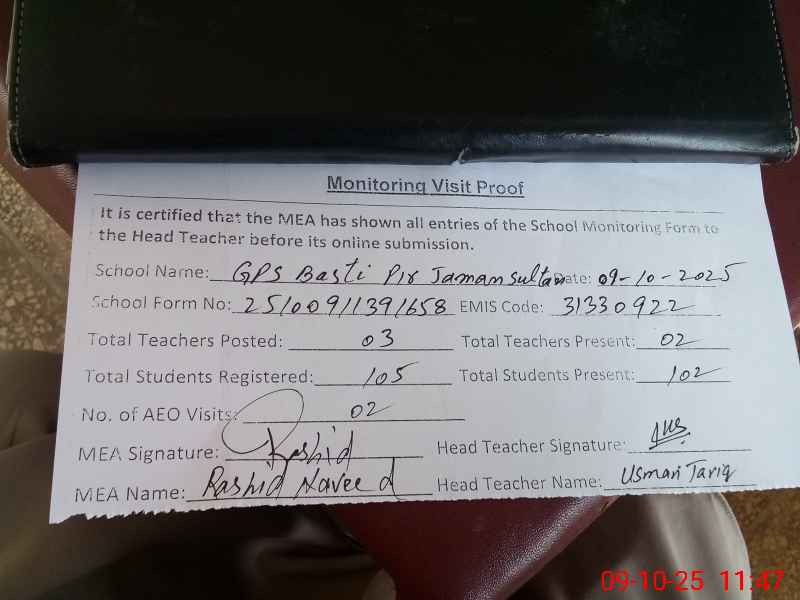 Monitoring Visit Proof
It is certified that the MEA has shown all entries of the School Monitoring Form to
the Head Teacher before its online submission.
School Name: GPS Basti Pir Jamam Sultan Date: 09-10-2025
School Form No: 25100911391658 EMIS Code: 31330922
Total Teachers Posted: 03 Total Teachers Present: 02
Total Students Registered: 105 Total Students Present: 102
No. of AEO Visits: 02
MEA Signature: Rashid Head Teacher Signature:
MEA Name: Rashid Naveed Head Teacher Name: Usman Tariq
09-10-25 11:47